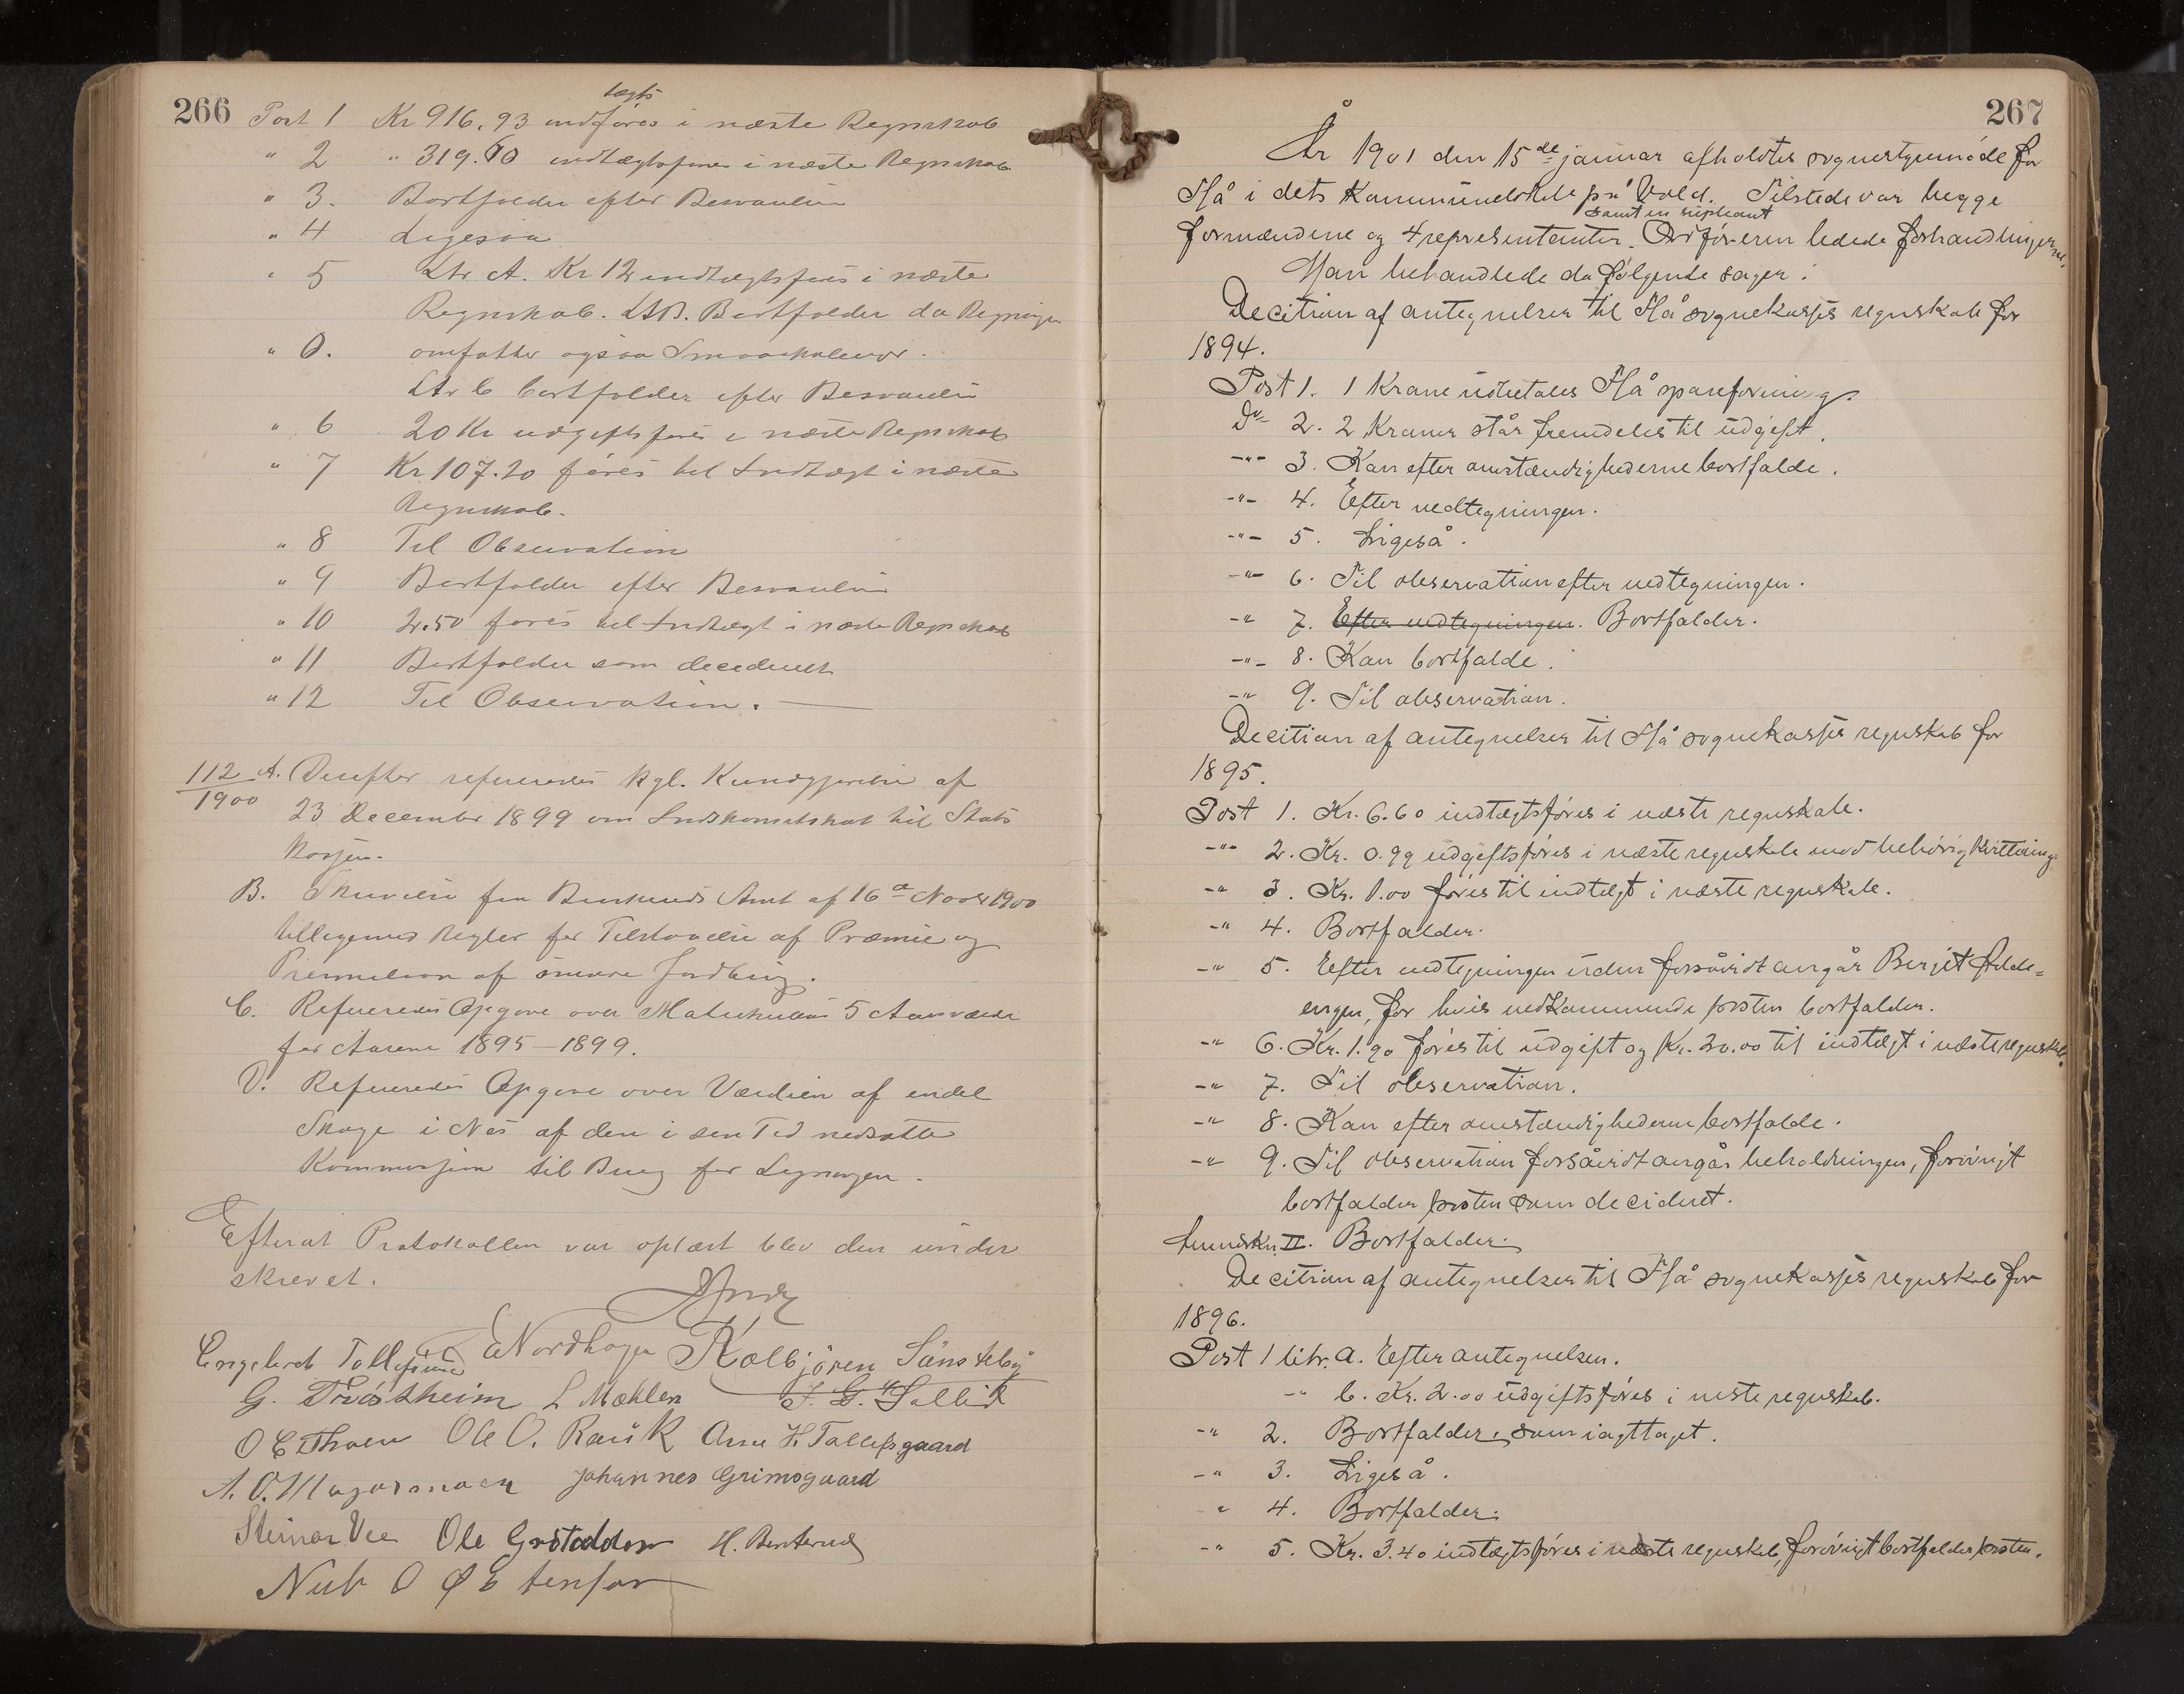 266
Post 1 Kr 916.93 indtægtsføres i næste Regnskab
" 2 " 319.60 indtægtsføres i næste Regnskab
" 3. Bortfalder efter Besvarelsen
" 4 Ligesaa
" 5 Ltr A. Kr 12 indtægtsføres i næste
Regnskab. Ltr B. Bortfalder da Regningen
" 0. omfatter ogsaa
Ltr C bortfalder efter Besvarelsen
" 6 20 Kr udgiftsføres i næste Regnskab
" 7 Kr 107.20 føres til Indtægt i næste
Regnskab.
" 8 Til Observation
" 9 Bortfalder efter Besvarelsen
" 10 2.50 føres til Indtægt i næste Regnskab
" 11 Bortfalder som decideret
" 12 Til Observation.
112/1900 A. Derefter refereredes kgl. Kundgjørelse af
23 December 1899 om Indkomstskat til Stats
kassen.
B. Skrivelse fra Buskeruds Amt af 16de Novbr 1900
tilligemed Regler for Tilstaaelse af Præmie og
af mindre Jordbrug.
C. Refereredes Opgave over Matrikulens 5 Aarsværk
for Aarene 1895–1899.
D. Refereredes Opgave over Værdien af endel
Skoge i Nes af den i sen Tid nedsatte
Kommission til Brug for Ligningen.
Efterat Protokollen var oplæst blev den under
skrevet.
Engebret Tollefsrud E Nordhagen K Kolbjören Sänsteby
G. Trøstheim L Mæhlen T. G. Sellik
O E Thoen Ole O. Rauk Arne H. Tollefsgaard
A. O. Johannes Grimsgaard
Steinar Vee Ole Grøtodden H. Benterud
Nub O
267
År 1901 den 15de januar afholdtes sognestyremöde for
Flå i dets Kommunelokale på Vold. Tilstede var begge
samt en supleant
formændene og 4 representanter. Ordføreren ledede forhandlingerne.
Man behandlede da følgende sager:
Decition af antegnelser til Flå sognekasses regnskab for
1894.
Post 1. 1 Krone udbetales Flå spareforening.
Do 2. 2 Kroner står fremdeles til udgift.
-"- 3. Kan efter omstændighederne bortfalde.
-"- 4. Efter nedtegningen.
-"- 5. Ligeså.
-"- 6. Til observation efter nedtegningen.
-"- 7. Efter nedtegningen. Bortfalder.
-"- 8. Kan bortfalde.
-"- 9. Til observation.
Decition af antegnelser til Flå sognekasses regnskab for
1895.
Post 1. Kr. 6.60 indtægtsføres i næste regnskab.
-"- 2. Kr. 0.99 udgiftsføres i næste regnskab mod behørig kvittering.
-"- 3. Kr. 1.00 føres til indtægt i næste regnskab.
-"- 4. Bortfalder.
-"- 5. Efter nedtegningen uden forsåvidt angår Berjet Adde=
engen, for hvis vedkommende posten bortfalder.
-"- 6. Kr. 1.90 føres til udgift og Kr. 20.00 til indtægt i næste regnskab.
-"- 7. Til observation.
-"- 8. Kan efter omstændighederne bortfalde.
-"- 9. Til observation forsåvidt angår beholdningen, forøvrigt
bortfalder posten som decideret.
II. Bortfalder.
Decition af antegnelser til Flå sognekasses regnskab for
1896.
Post 1 litr. a. Efter antegnelsen.
-"- b. Kr. 2.00 udgiftsføres i næste regnskab.
-"- 2. Bortfalder, som iagttaget.
-"- 3. Ligeså.
" 4. Bortfalder.
-"- 5. Kr. 3.40 indtægtsføres i næste regnskab, forøvrigt bortfalder posten.